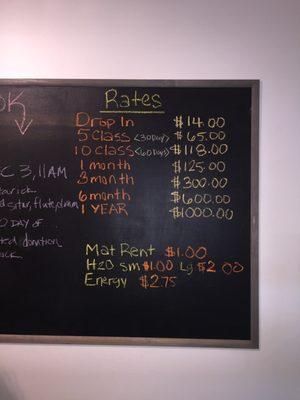 OK
Rates
Drop In $14.00
5 Class <30 Day> $65.00
10 Class <60 Days> $118.00
1 month $125.00
3 month $300.00
6 month $600.00
1 YEAR $1000.00
C 3, 11AM
sitar, flute, drum
DAY OF...
donation
Mat Rent $1.00
H2O sm $1.00 Lg $2.00
Energy $2.75